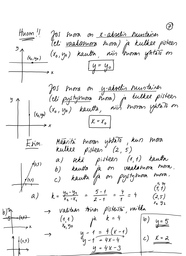 Huom!!
Jos suora on x-akselin suuntainen
(eli vaakasuora suora) ja kulkee pisteen
(x₀, y₀) kautta, niin suoran yhtälö on
y = y₀
Jos suora on y-akselin suuntainen
(eli pystysuora suora) ja kulkee pisteen
(x₀, y₀) kautta, niin suoran yhtälö on
x = x₀
Esim. Määritä suoran yhtälö, kun suora
kulkee pisteen (2, 5)
a) sekä pisteen (1, 1) kautta
b) kautta ja on vaakasuora suora.
c) kautta ja on pystysuora suora.
a) k = = = 4
(1, 1)
(2, 5)
ja k = 4
y - 1 = 4(x - 1)
y - 1 = 4x - 4
y = 4x - 3
b) y = 5
c) x = 2